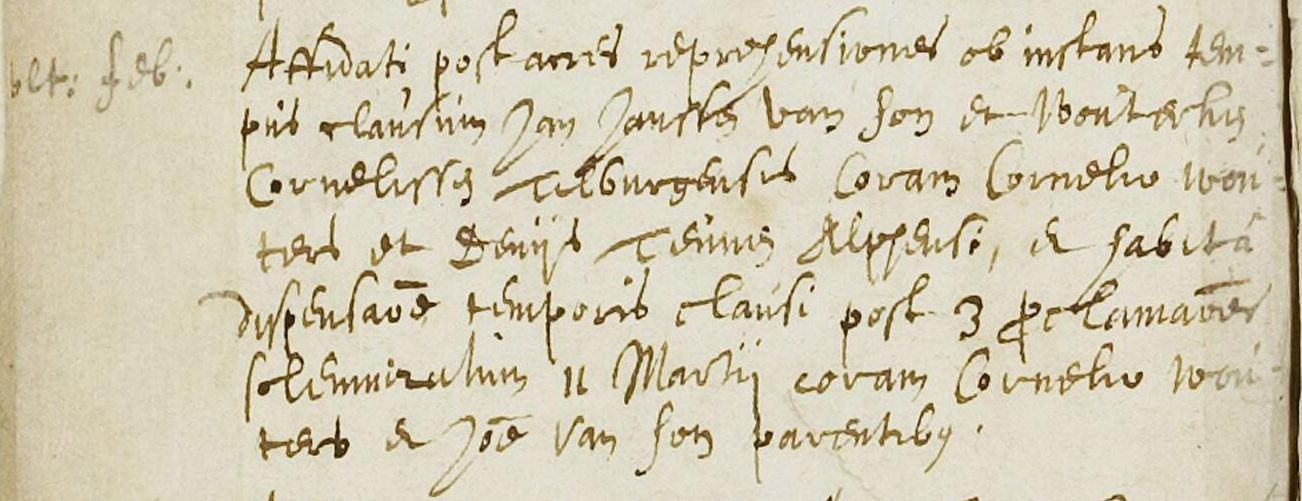 ult: feb:. Affidati post acres reprehensiones ob instans tem=
pus clausum Jan Janssen van Son et Wouterken
Cornelissen Tilburgensis Coram Cornelio Wou=
ters et Denijs Teunis Alphensi, et habita
dispensaōe temporis clausi post 3 proclamaōes
solemnizatum 11 Martij coram Cornelio Wou=
ters et Joē van Son parentibus.